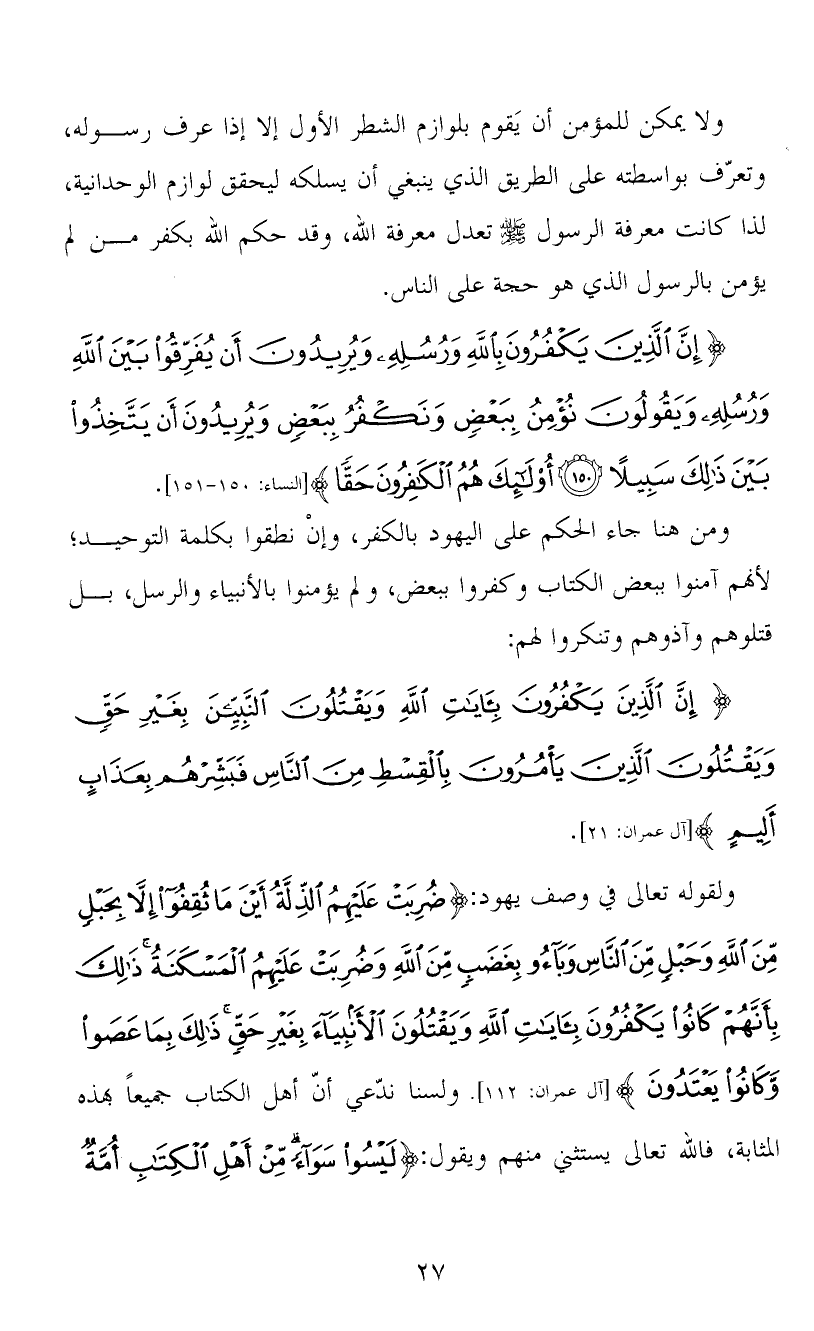 ولا يمكن للمؤمن أن يَقوم بلوازم الشطر الأول إلا إذا عرف رسوله،
وتعرّف بواسطته على الطريق الذي ينبغي أن يسلكه ليحقق لوازم الوحدانية،
لذا كانت معرفة الرسول ﷺ تعدل معرفة الله، وقد حكم الله بكفر من لم
يؤمن بالرسول الذي هو حجة على الناس.
﴿ إِنَّ ٱلَّذِينَ يَكْفُرُونَ بِٱللَّهِ وَرُسُلِهِۦ وَيُرِيدُونَ أَن يُفَرِّقُوا۟ بَيْنَ ٱللَّهِ
وَرُسُلِهِۦ وَيَقُولُونَ نُؤْمِنُ بِبَعْضٍ وَنَكْفُرُ بِبَعْضٍ وَيُرِيدُونَ أَن يَتَّخِذُوا۟
بَيْنَ ذَٰلِكَ سَبِيلًا ١٥٠ أُو۟لَٰٓئِكَ هُمُ ٱلْكَٰفِرُونَ حَقًّا ﴾ [النساء: ١٥٠-١٥١].
ومن هنا جاء الحكم على اليهود بالكفر، وإنْ نطقوا بكلمة التوحيد؛
لأنهم آمنوا ببعض الكتاب وكفروا ببعض، ولم يؤمنوا بالأنبياء والرسل، بل
قتلوهم وآذوهم وتنكروا لهم:
﴿ إِنَّ ٱلَّذِينَ يَكْفُرُونَ بِـَٔايَٰتِ ٱللَّهِ وَيَقْتُلُونَ ٱلنَّبِيِّـۧنَ بِغَيْرِ حَقٍّ
وَيَقْتُلُونَ ٱلَّذِينَ يَأْمُرُونَ بِٱلْقِسْطِ مِنَ ٱلنَّاسِ فَبَشِّرْهُم بِعَذَابٍ
أَلِيمٍ ﴾ [آل عمران: ٢١].
ولقوله تعالى في وصف يهود: ﴿ ضُرِبَتْ عَلَيْهِمُ ٱلذِّلَّةُ أَيْنَ مَا ثُقِفُوٓا۟ إِلَّا بِحَبْلٍ
مِّنَ ٱللَّهِ وَحَبْلٍ مِّنَ ٱلنَّاسِ وَبَآءُو بِغَضَبٍ مِّنَ ٱللَّهِ وَضُرِبَتْ عَلَيْهِمُ ٱلْمَسْكَنَةُ ۚ ذَٰلِكَ
بِأَنَّهُمْ كَانُوا۟ يَكْفُرُونَ بِـَٔايَٰتِ ٱللَّهِ وَيَقْتُلُونَ ٱلْأَنۢبِيَآءَ بِغَيْرِ حَقٍّ ۚ ذَٰلِكَ بِمَا عَصَوا۟
وَّكَانُوا۟ يَعْتَدُونَ ﴾ [آل عمران: ١١٢]. ولسنا ندّعي أنّ أهل الكتاب جميعاً بهذه
المثابة، فالله تعالى يستثني منهم ويقول: ﴿ لَيْسُوا۟ سَوَآءً ۗ مِّنْ أَهْلِ ٱلْكِتَٰبِ أُمَّةٌ
٢٧